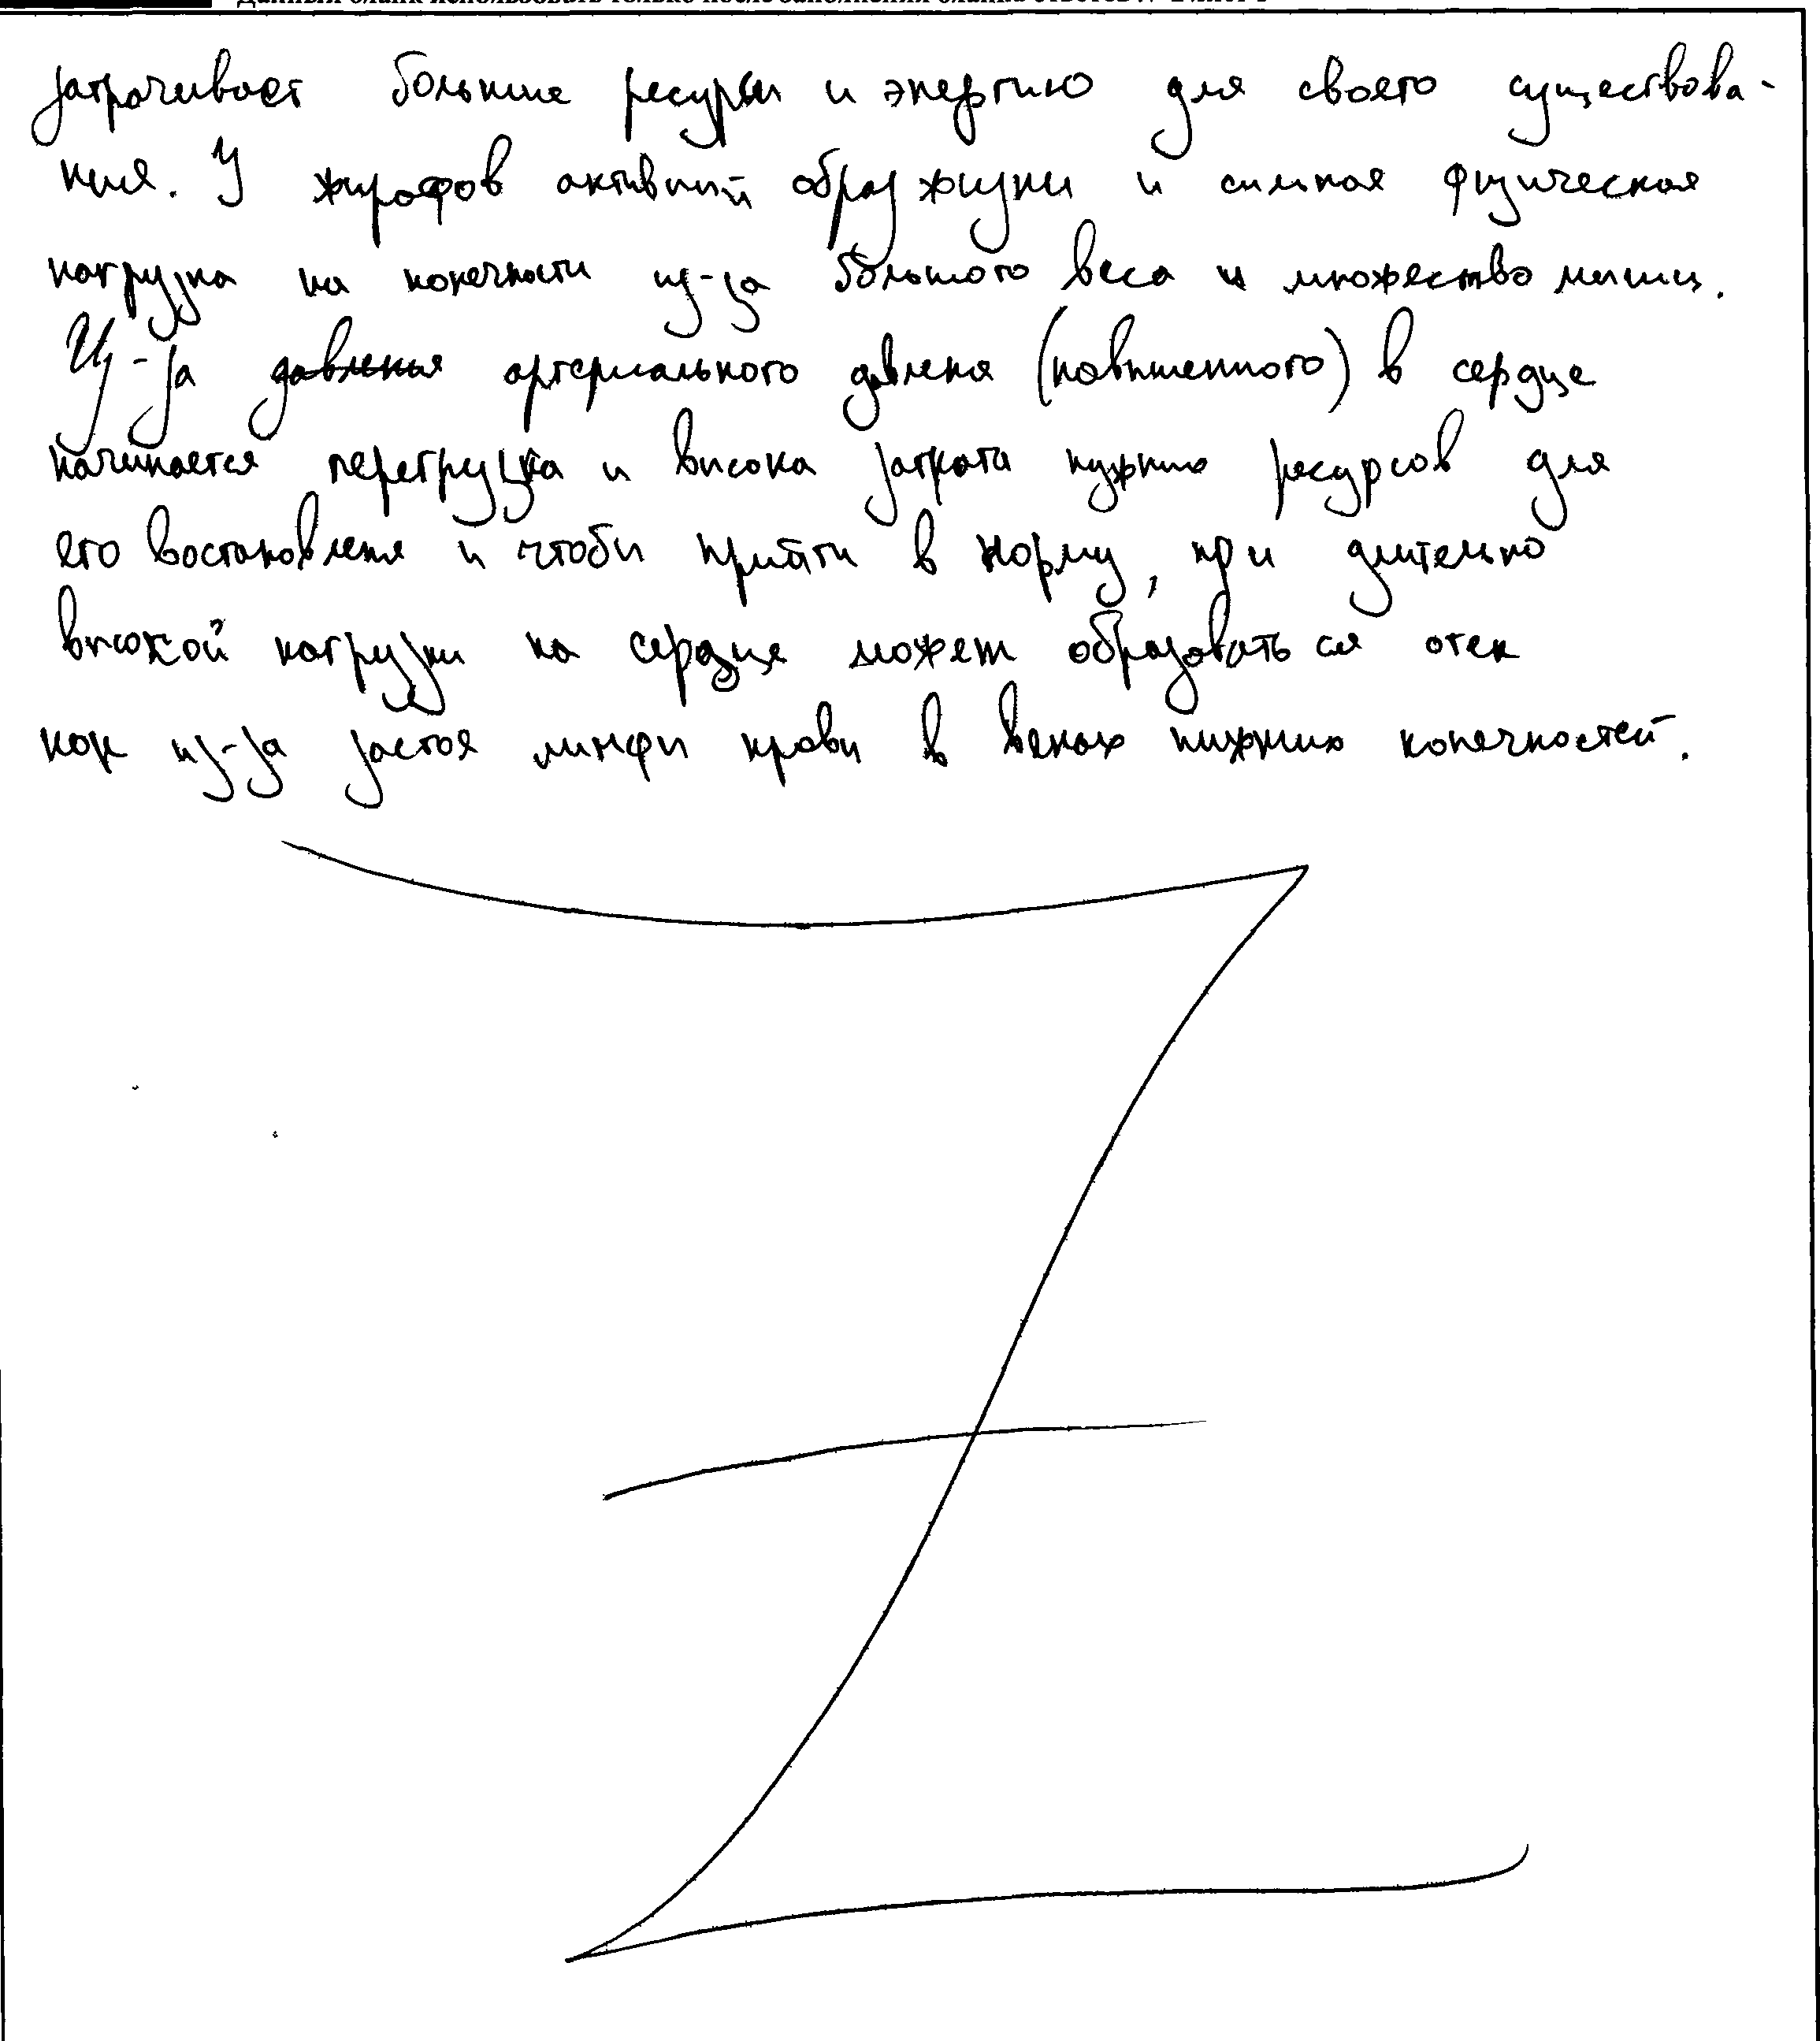 Данный бланк использовать только после заполнения бланка ответов №
затрачивает большие ресурсы и энергию для своего существова-
ния. У жирафов активный образ жизни и сильная физическая
нагрузка на конечности из-за большого веса и множество мышц.
Из-за давления артериального давленя (повышенного) в сердце
начинается перегрузка и высока затрата нужных ресурсов для
его востановленя и чтобы прийти в норму, при длительно
высокой нагрузки на сердце может образоваться отек
как из-за застоя лимфы крови в венах нижних конечностей.